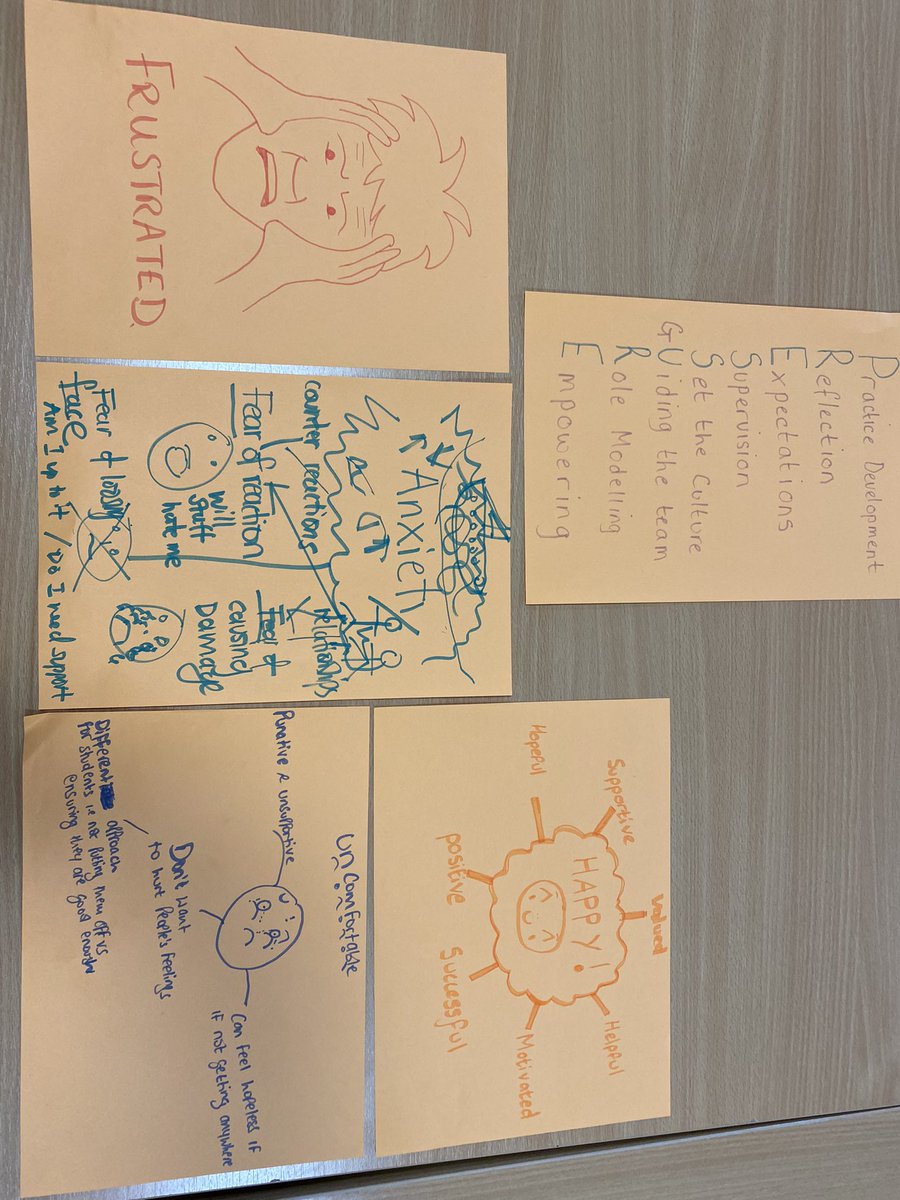 Practice Development
Reflection
Expectations
Supervision
Set the Culture
GUiding the team
Role Modelling
Empowering
Valued
Supportive
Helpful
HAPPY!
Hopeful
Motivated
positive
Successful
FRUSTRATED
Anxiety
relationships
counter reactions
Fear of reaction
Fear of
causing
Damage
will
stuff
hate me
Fear of loosing
face
Am I up to it / Do I need support
UnComfortable
Punative & unsupportive
Can feel hopeless if
if not getting anywhere
Don't want
to hurt People's feelings
Different approach
for students i.e not putting them off vs
ensuring they are good enough